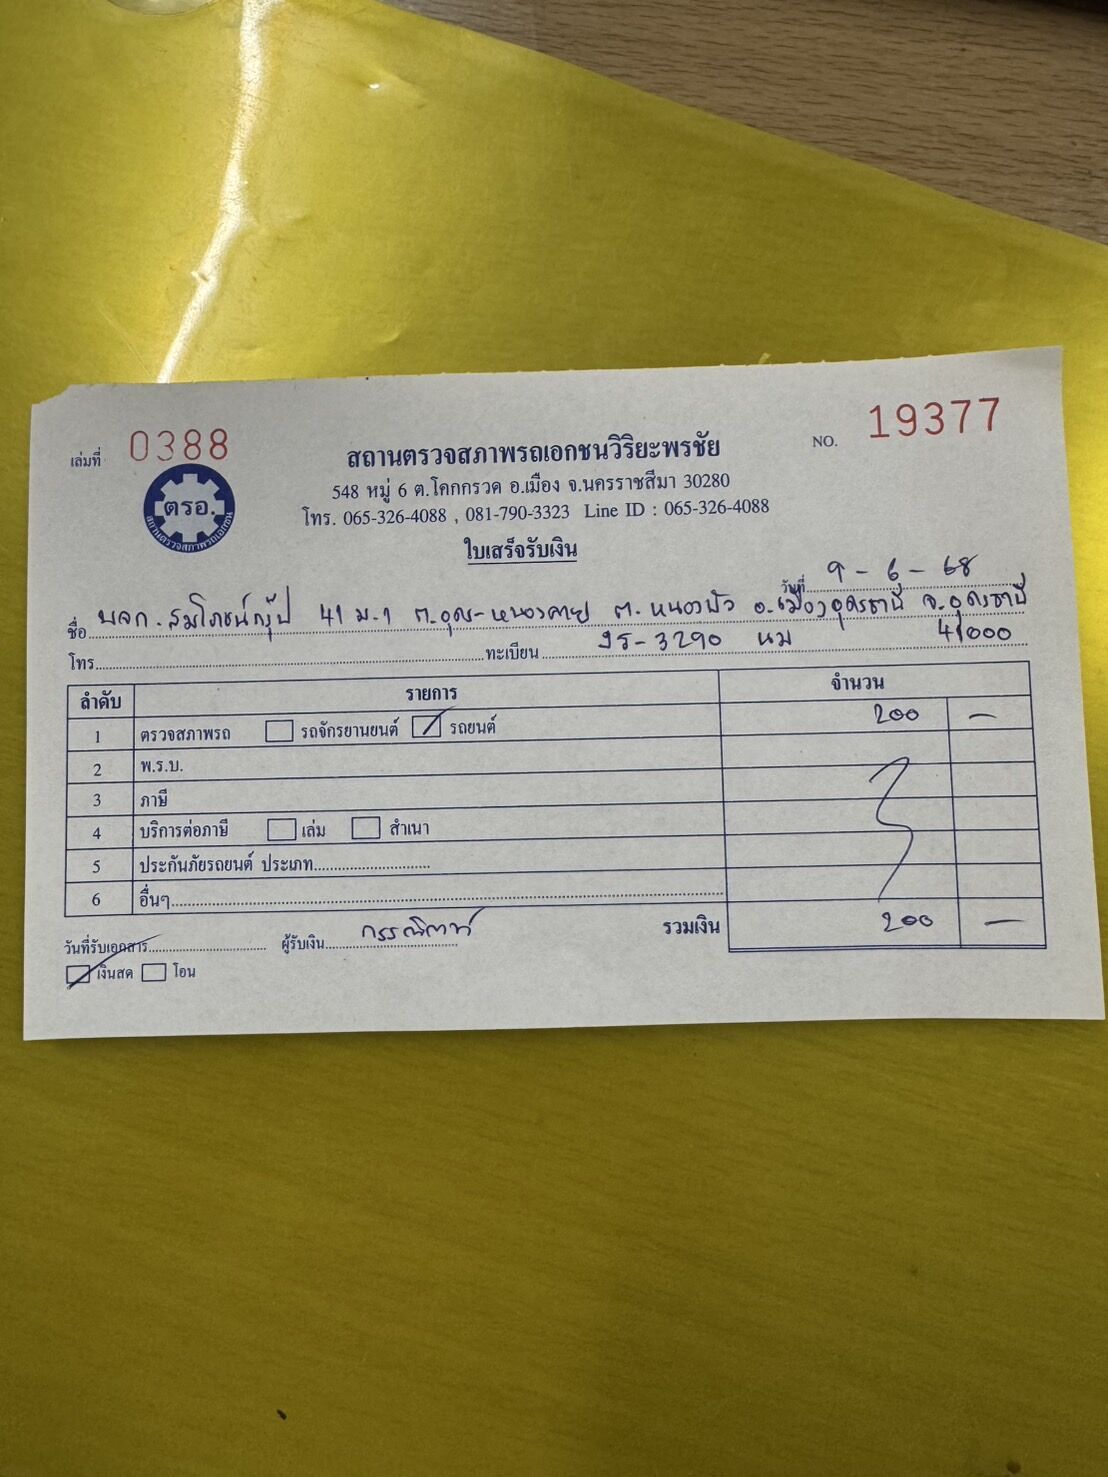 เล่มที่ 0388
NO. 19377
ตรอ.
สถานตรวจสภาพรถเอกชน
สถานตรวจสภาพรถเอกชนวิริยะพรชัย
548 หมู่ 6 ต.โคกกรวด อ.เมือง จ.นครราชสีมา 30280
โทร. 065-326-4088 , 081-790-3323 Line ID : 065-326-4088
ใบเสร็จรับเงิน
วันที่ 9-6-68
ชื่อ บจก.สมโภชน์กรุ๊ป 41 ม.1 ถ.อุดร-หนองคาย ต.หนองบัว อ.เมืองอุดรธานี จ.อุดรธานี
โทร ทะเบียน -3290 นม 41000
ลำดับ รายการ จำนวน
1 ตรวจสภาพรถ รถจักรยานยนต์ รถยนต์ 200 —
2 พ.ร.บ.
3 ภาษี
4 บริการต่อภาษี เล่ม สำเนา
5 ประกันภัยรถยนต์ ประเภท
6 อื่นๆ
รวมเงิน 200 —
วันที่รับเอกสาร ผู้รับเงิน
เงินสด โอน